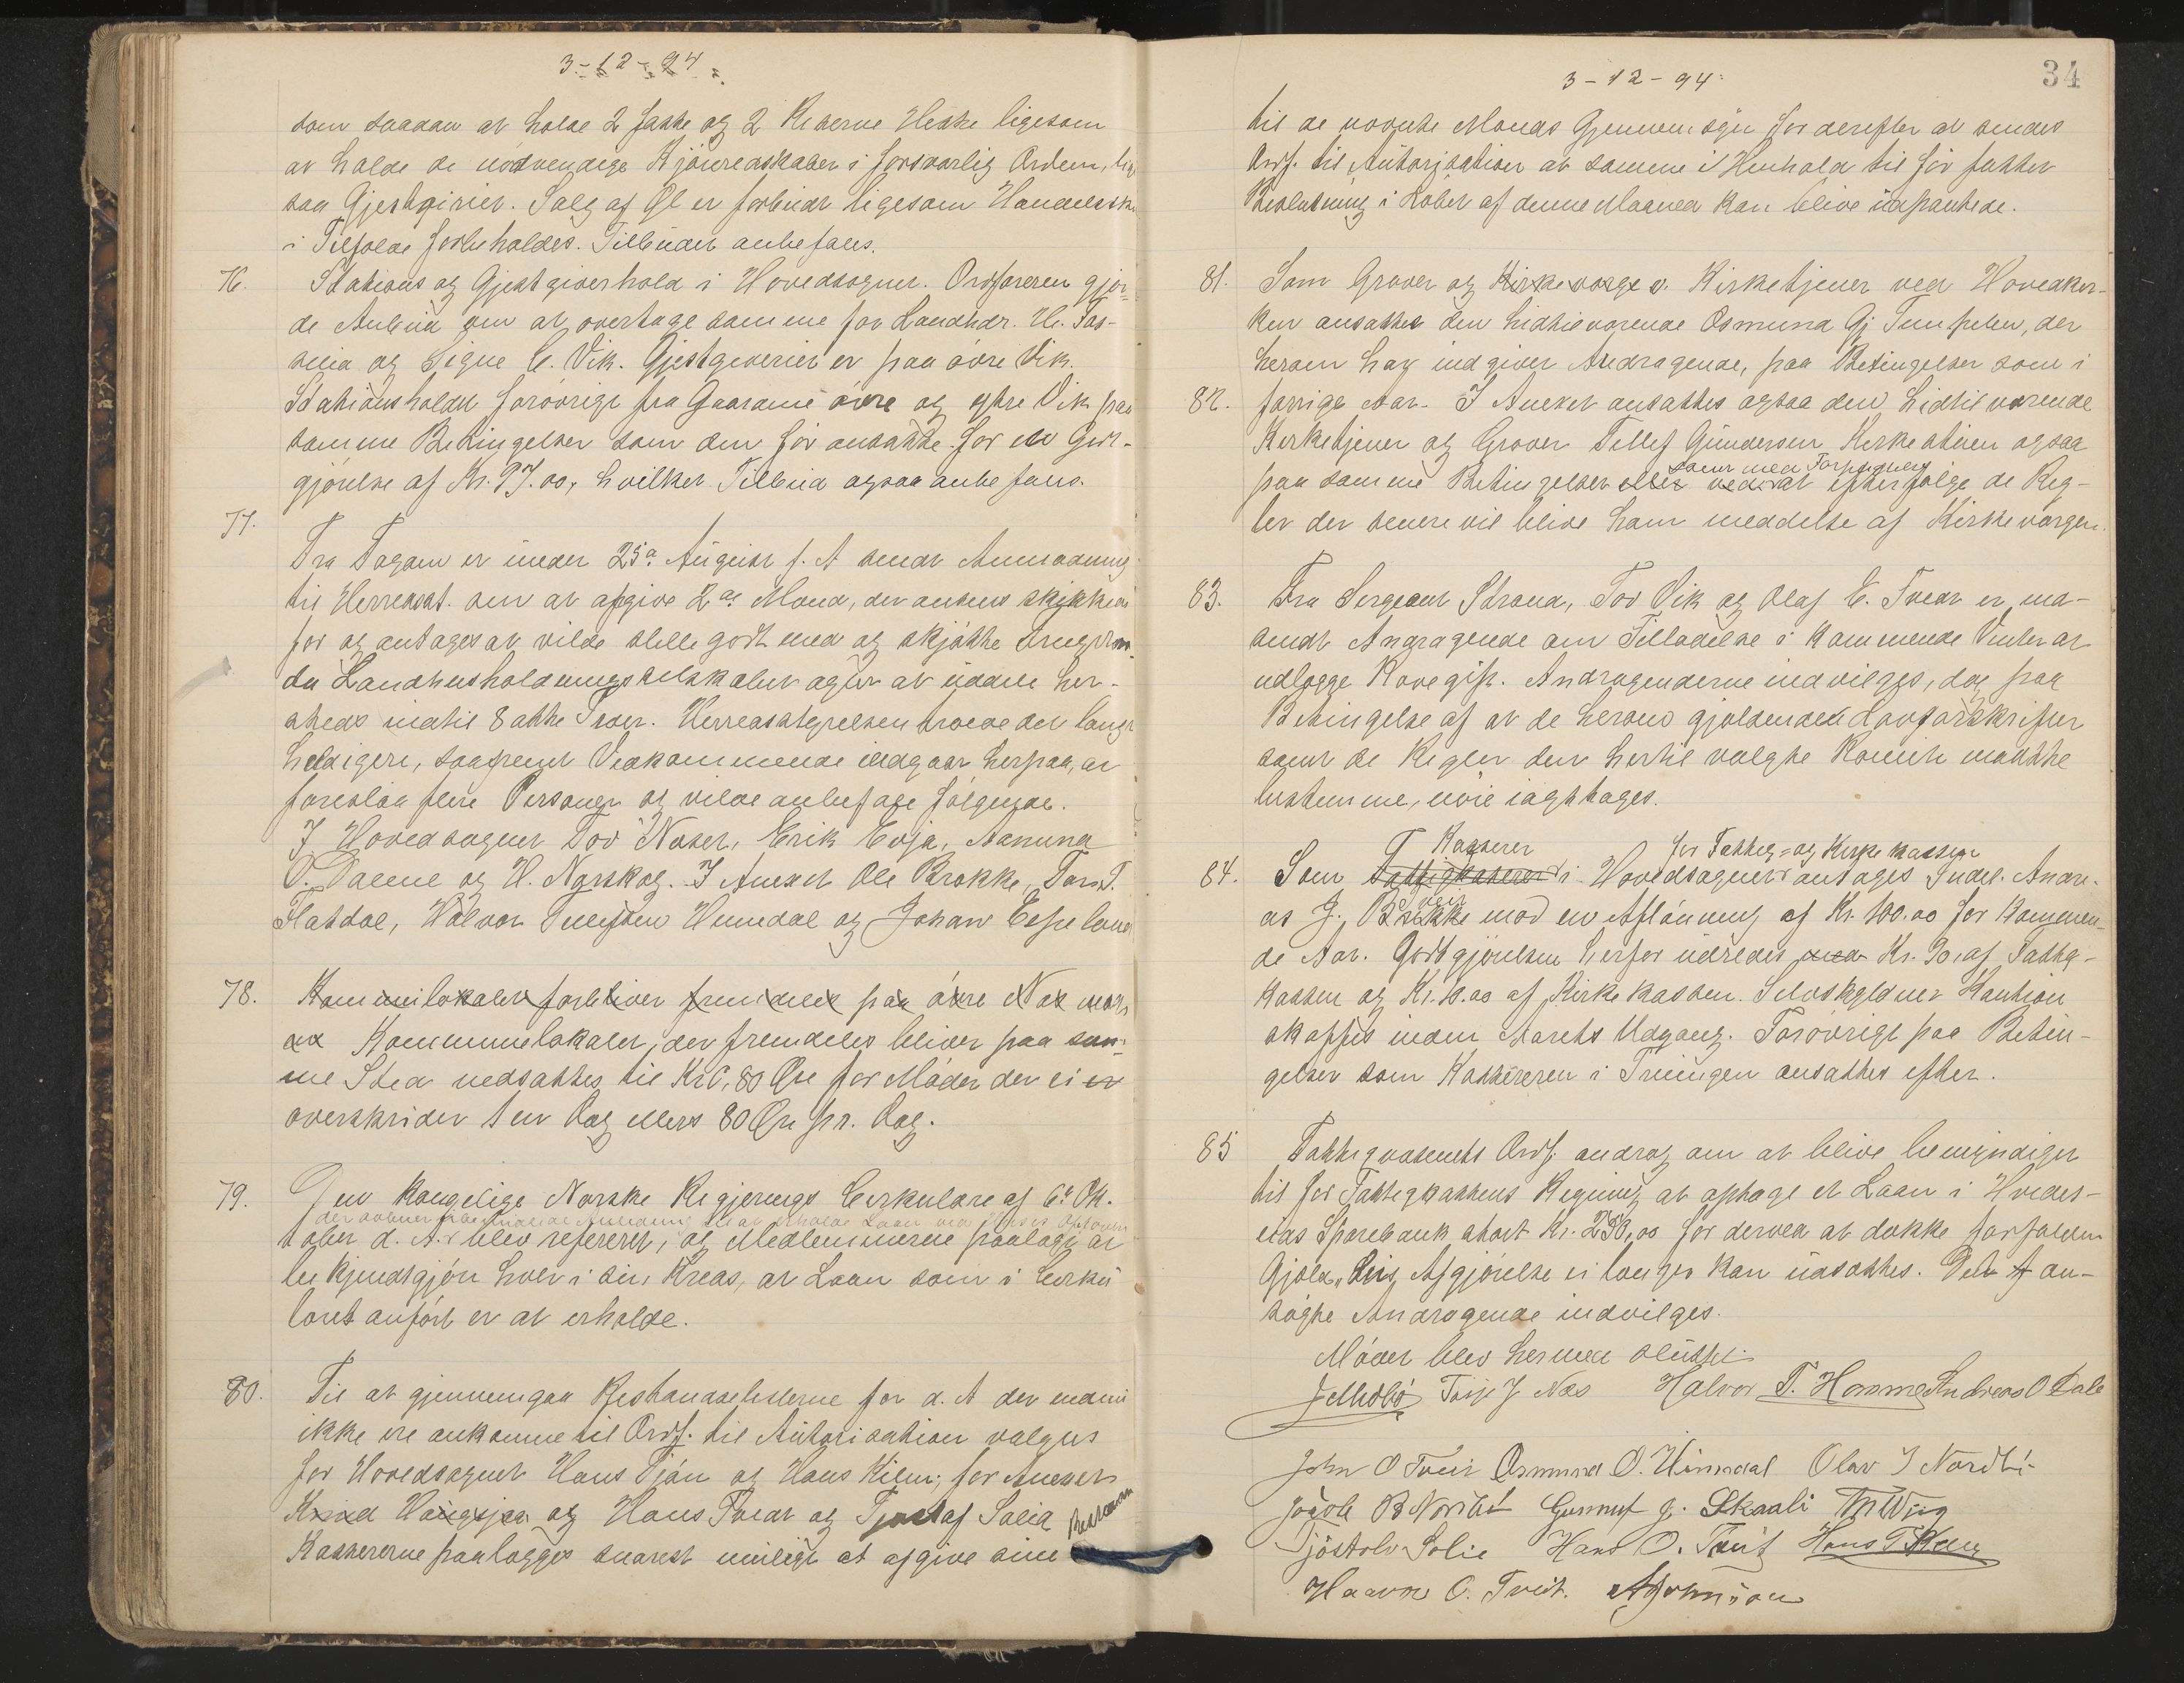 3-12-94.
som saadan at holde 2 faste og 2 Reserve Heste ligesom
at holde de nødvendige Kjøreredskaber i forsvarlig Orden, lige
saa Gjestgiveri. Salg af Øl er forbudt ligesom
i Tilfælde forbeholdes. Tilbudet anbefales.
76. Stations og Gjestgiverhold i Hovedsognet. Ordføreren gjor-
de Anbud om at overtage samme for Landhdr. H. Tas-
og Signe Vik. Gjestgiveriet er paa øvre Vik.
Stationsholdet forøvrigt fra Gaardene øvre og ytre Vik paa
samme Betingelser som den før ansatte for en Godt-
gjørelse af Kr. 97.00, hvilket Tilbud ogsaa anbefales.
77.
Fra Fogden er under 25de August f. A sendt Anmodning
til Herredsst. om at opgive 2de Mænd, der ansees skikkede
for og antages at vilde stelle godt med og skjøtte
da Landhusholdningsselskabet agter at uddele her-
steds indtil 8 otte Træer. Herredsstyrelsen troede det langt
heldigere, saafremt Vedkommende indgaar herpaa, at
foreslaa flere Personer og vilde anbefale følgende.
I Hovedsognet Tov Næset, Erik Evja, Aanund
O. Dalene og H. Norskog. I Annexet Ole Brokke, Tor T.
Flatdal, Halvor Hemdal og Johan Espeland
78. Kommunelokalet forbliver fremdeles paa øvre Næs
Kommunelokalet, der fremdeles bliver paa sam-
me Sted nedsattes til Kr 0,80 Øre for Møder der ei er
overskrider 1 en Dag ellers 80 Øre pr. Dag.
79. Den kongelige Norske Regjerings Cirkulære af 6te Ok-
tober d. A. blev refereret, og Medlemmerne paalagt at
bekjendtgjøre hver i sin Kreds, at Laan som i Cirku
læret anført er at erholde.
80. Til at gjennemgaa Restanselisterne for d. A der endnu
ikke ere ankomne til Ordf. til Autorisation valgtes
for Hovedsognet Hans Tjøn og Hans Kilen, for Annexet
og Hans Tveit og Tjøstolf Solie
Kassererne paalægges snarest muligt at afgive sine
34
3-12-94.
til de nævnte Mænds Gjennemsyn for derefter at sendes
Ordf. til Autorisation at samme i Henhold til før fattet
Beslutning i Løbet af denne Maaned kan blive udpantede.
81. Som Graver og Kirkeværge v. Kirketjener ved Hovedkir-
ken ansattes den hidtilværende Osmund Gj. der
herom har indgivet Andragende, paa Betingelser som i
82. forrige Aar. I Annexet ansattes ogsaa den hidtilværende
Kirketjener og Graver Tellef Gundersen Kirkestøen ogsaa
samt med Forpligtelse
paa samme Betingelser at efterfølge de Reg-
ler der senere vil blive ham meddelte af Kirkeværgen.
83. Fra Sergeant Strand, Tov Vik og Olaf E. Tveit er ind-
sendt Andragende om Tilladelse i kommende Vinter at
udlægge Rovgift. Andragenderne indvilges, dog paa
Betingelse af at de herom gjældende Lovforskrifter
samt de Regler den hertil valgte Komite maatte
bestemme, nøie iagttages.
Kasserer for Fattig- og Kirkekassen
84. Som Fattigkasserer i Hovedsognet antages Andre-
as J. mod en Aflønning af Kr. 100.00 for kommen-
de Aar. Godtgjørelsen herfor udredes med Kr. 90 af Fattig-
kassen og Kr. 10.00 af Kirkekassen. Selvskyldner Kaution
skaffes inden Aarets Udgang. Forøvrigt paa Betin-
gelser som Kassereren i Treungen ansattes efter.
85 Fattigvæsenets Ordf. androg om at blive bemyndiget
til for Fattigkassens Regning at optage et Laan i Hvides-
eids Sparebank stort Kr. 250,00 for derved at dække forfalden
Gjæld, hvis Afgjørelse ei længer kan udsættes. Det an-
søgte Andragende indvilges.
Mødet blev hermed sluttet.
Tarje J Næs Halvor T. Homme Andreas O Dale
John O Tveit Osmund O. Hemdal Olav J Nordbø
Jacob B Nordbø Gunnuf J. Skaali
Tjøstolv Solie Hans O. Tveit
Haavor O. Tveit.